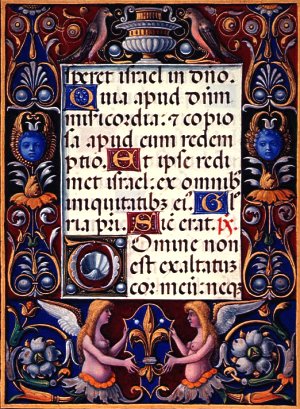 speret israel in dno.
Quia apud dnm
misericordia: ⁊ copio
sa apud eum redem
ptio. Et ipse redi
met israel: ex omnib
iniquitatib eſ. Glo
ria pri. Sic erat. ix.
Domine non
est exaltatuz
cor meu: neqz